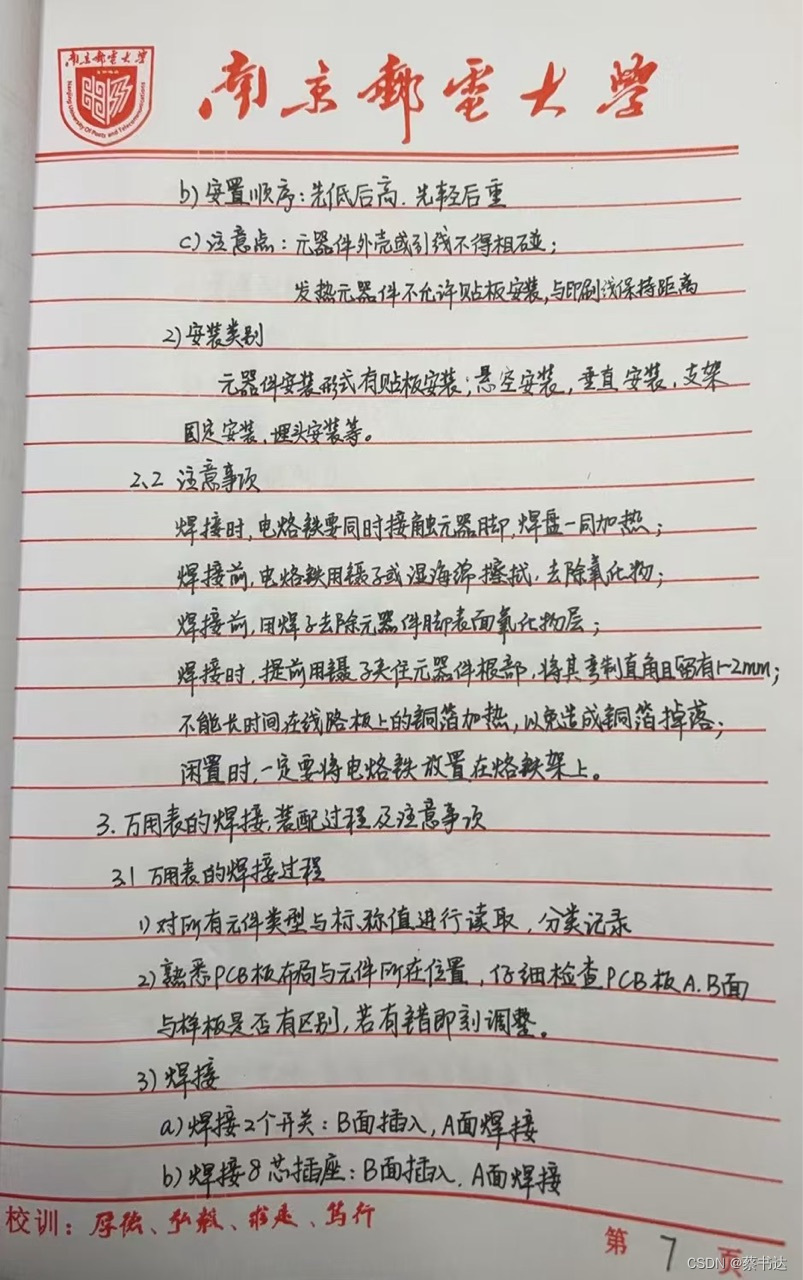 南京邮电大学
Nanjing University Of Posts and Telecommunications
南京郵電大學
b) 安置顺序：先低后高．先轻后重
c) 注意点：元器件外壳或引线不得相碰；
发热元器件不允许贴板安装，与印刷线保持距离
2) 安装类别
元器件安装形式有贴板安装；悬空安装，垂直安装，支架
固定安装，埋头安装等。
2.2 注意事项
焊接时，电烙铁要同时接触元器脚，焊盘一同加热；
焊接前，电烙铁用镊子或湿海绵擦拭．去除氧化物；
焊接前，用焊子去除元器件脚表面氧化物层；
焊接时，提前用镊子夹住元器件根部，将其弯制直角且留有1~2mm；
不能长时间在线路板上的铜箔加热，以免造成铜箔掉落；
闲置时，一定要将电烙铁放置在烙铁架上。
3. 万用表的焊接、装配过程及注意事项
3.1 万用表的焊接过程
1) 对所有元件类型与标称值进行读取，分类记录
2) 熟悉PCB板布局与元件所在位置，仔细检查PCB板A.B面
与样板是否有区别，若有错即刻调整。
3) 焊接
a) 焊接2个开关：B面插入，A面焊接
b) 焊接8芯插座：B面插入．A面焊接
校训：厚德、弘毅、求是、笃行
第 7 页
CSDN @蔡书达